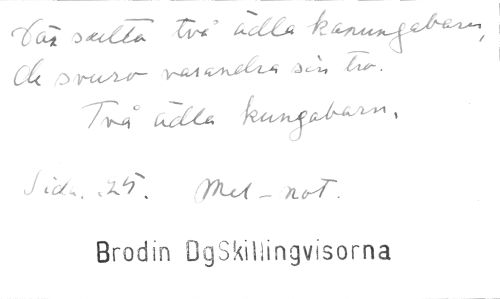 Där sutto två ädla konungabarn,
de svuro varandra sin tro.
Två ädla kungabarn.
Sida. 25. Mel-not.
Brodin DgSkillingvisorna